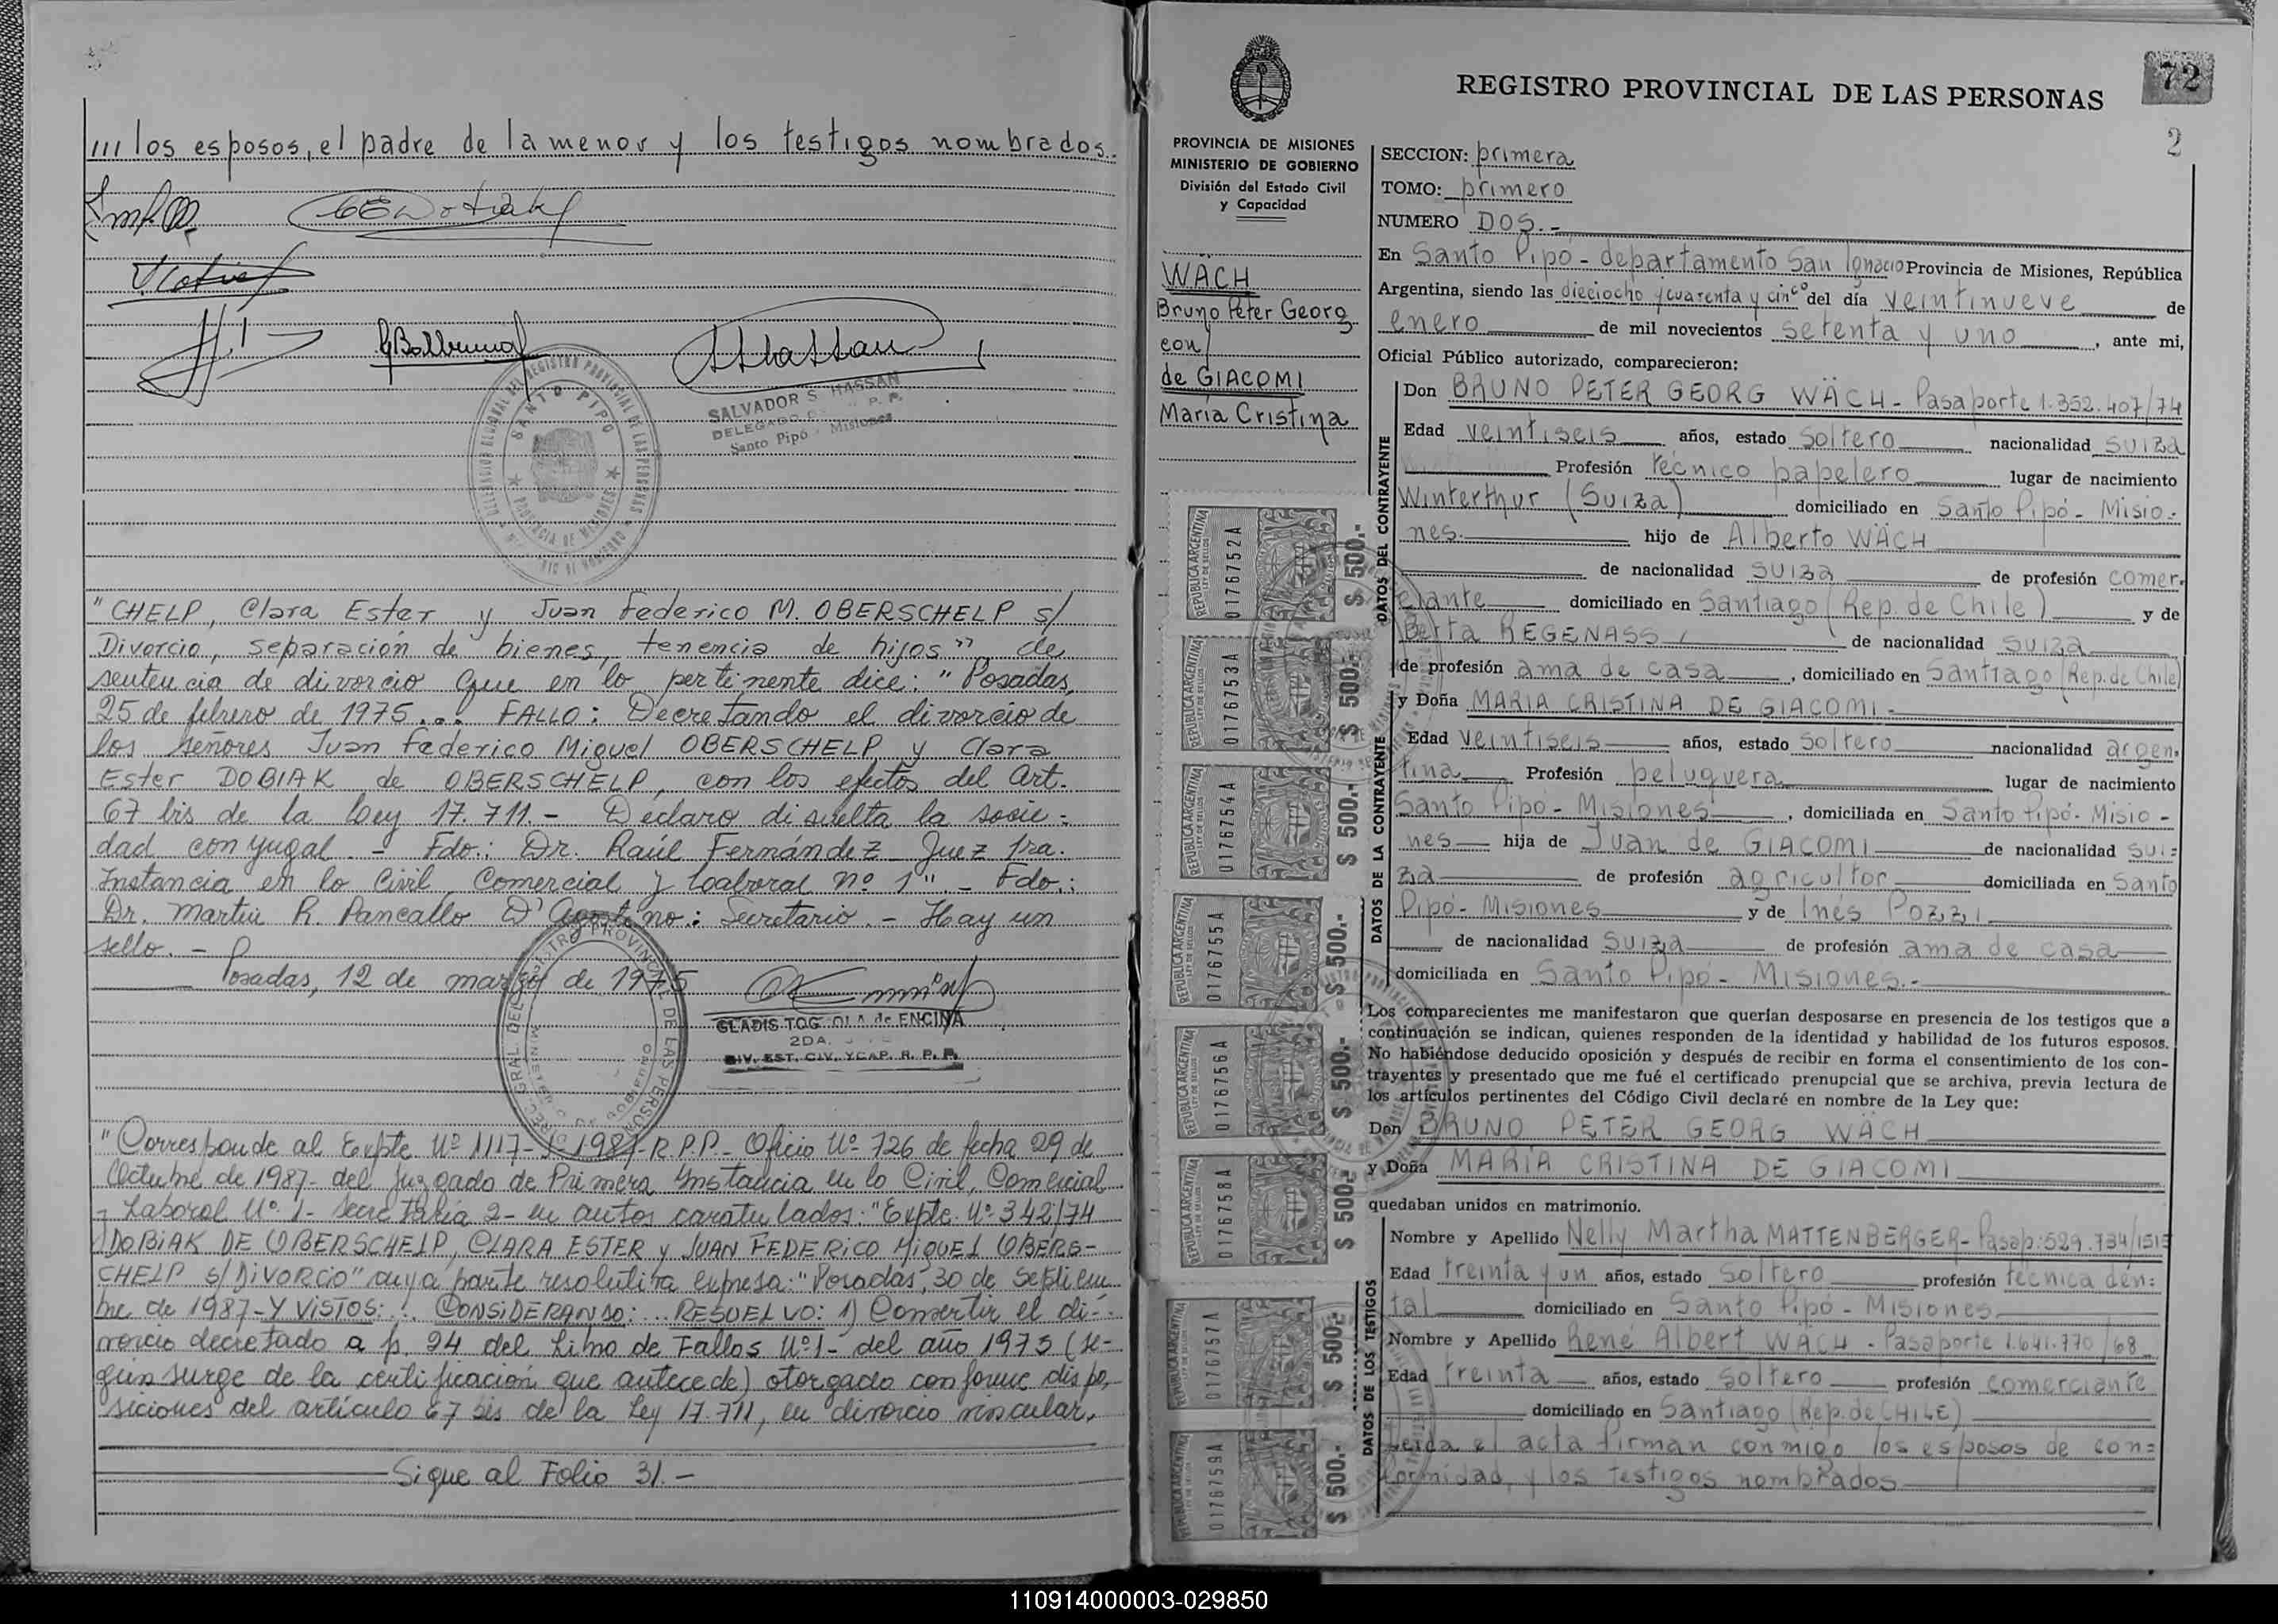 /// los esposos, el padre de la menor y los testigos nombrados.
SALVADOR S. HASSAN
DELEGADO P. P.
Santo Pipó - Misiones
"CHELP, Clara Ester y Juan Federico M. OBERSCHELP s/
Divorcio, separación de bienes, tenencia de hijos", de
sentencia de divorcio que en lo pertinente dice: "Posadas,
25 de febrero de 1975... FALLO: Decretando el divorcio de
los señores Juan Federico Miguel OBERSCHELP y Clara
Ester DOBIAK de OBERSCHELP, con los efectos del Art.
67 bis de la Ley 17.711.- Declaro disuelta la socie-
dad conyugal.- Fdo.: Dr. Raúl Fernández Juez 1ra.
Instancia en lo Civil, Comercial y Laboral nº 1".- Fdo.:
Dr. Martín R. Pancallo D'Agostino: Secretario.- Hay un
sello.-
Posadas, 12 de marzo de 1975
GLADIS de ENCINA
2DA.
DIV. EST. CIV. Y CAP. R. P. P.
"Corresponde al Expte Nº 1117- 1987-R.P.P.- Oficio Nº 726 de fecha 29 de
Octubre de 1987- del Juzgado de Primera Instancia en lo Civil, Comercial
y Laboral Nº 1- Secretaría 2- en autos caratulados: "Expte. Nº 342/74
DOBIAK DE OBERSCHELP, CLARA ESTER y JUAN FEDERICO MIGUEL OBERS-
CHELP s/DIVORCIO" cuya parte resolutiva expresa: "Posadas, 30 de Septiem
bre de 1987- Y VISTOS:.. CONSIDERANDO:... RESUELVO: 1) Convertir el di-
vorcio decretado a f. 24 del Libro de Fallos Nº 1- del año 1975 (se-
gún surge de la certificación que antecede) otorgado conforme dispo-
siciones del artículo 67 bis de la Ley 17.711, en divorcio vincular.
Sigue al Folio 31.-
REGISTRO PROVINCIAL DE LAS PERSONAS
72
2
PROVINCIA DE MISIONES
MINISTERIO DE GOBIERNO
División del Estado Civil
y Capacidad
WÄCH
Bruno Peter Georg
con
de GIACOMI
María Cristina
SECCION: primera
TOMO: primero
NUMERO DOS.-
En Santo Pipó - departamento San Ignacio Provincia de Misiones, República
Argentina, siendo las dieciocho y cuarenta y cinco del día veintinueve de
enero de mil novecientos setenta y uno, ante mi,
Oficial Público autorizado, comparecieron:
DATOS DEL CONTRAYENTE
Don BRUNO PETER GEORG WÄCH - Pasaporte 1.352.407/74
Edad veintiseis años, estado soltero nacionalidad suiza
Profesión técnico papelero lugar de nacimiento
Winterthur (Suiza) domiciliado en Santo Pipó - Misio-
nes. hijo de Alberto WÄCH
de nacionalidad suiza de profesión comer-
ciante domiciliado en Santiago (Rep. de Chile) y de
Berta REGENASS de nacionalidad suiza
de profesión ama de casa, domiciliado en Santiago (Rep. de Chile)
DATOS DE LA CONTRAYENTE
y Doña MARIA CRISTINA DE GIACOMI.-
Edad veintiseis años, estado soltero nacionalidad argen-
tina Profesión peluquera lugar de nacimiento
Santo Pipó - Misiones, domiciliada en Santo Pipó - Misio-
nes hija de Juan de GIACOMI de nacionalidad sui-
za de profesión agricultor domiciliada en Santo
Pipó - Misiones y de Inés POZZI
de nacionalidad suiza de profesión ama de casa
domiciliada en Santo Pipó - Misiones.-
Los comparecientes me manifestaron que querían desposarse en presencia de los testigos que a
continuación se indican, quienes responden de la identidad y habilidad de los futuros esposos.
No habiéndose deducido oposición y después de recibir en forma el consentimiento de los con-
trayentes y presentado que me fué el certificado prenupcial que se archiva, previa lectura de
los artículos pertinentes del Código Civil declaré en nombre de la Ley que:
Don BRUNO PETER GEORG WÄCH
y Doña MARÍA CRISTINA DE GIACOMI
quedaban unidos en matrimonio.
DATOS DE LOS TESTIGOS
Nombre y Apellido Nelly Martha MATTENBERGER - Pasap: 529.734/
Edad treinta y un años, estado soltero profesión técnica den-
tal domiciliado en Santo Pipó - Misiones
Nombre y Apellido René Albert WÄCH - Pasaporte 1.641.770/68
Edad treinta años, estado soltero profesión comerciante
domiciliado en Santiago (Rep. de CHILE)
Leída el acta firman conmigo los esposos de con-
formidad, y los testigos nombrados
REPUBLICA ARGENTINA 0176752A $ 500.-
REPUBLICA ARGENTINA 0176753A $ 500.-
REPUBLICA ARGENTINA 0176754A $ 500.-
REPUBLICA ARGENTINA 0176755A $ 500.-
REPUBLICA ARGENTINA 0176756A $ 500.-
REPUBLICA ARGENTINA 0176758A $ 500.-
REPUBLICA ARGENTINA 0176757A $ 500.-
REPUBLICA ARGENTINA 0176759A $ 500.-
110914000003-029850